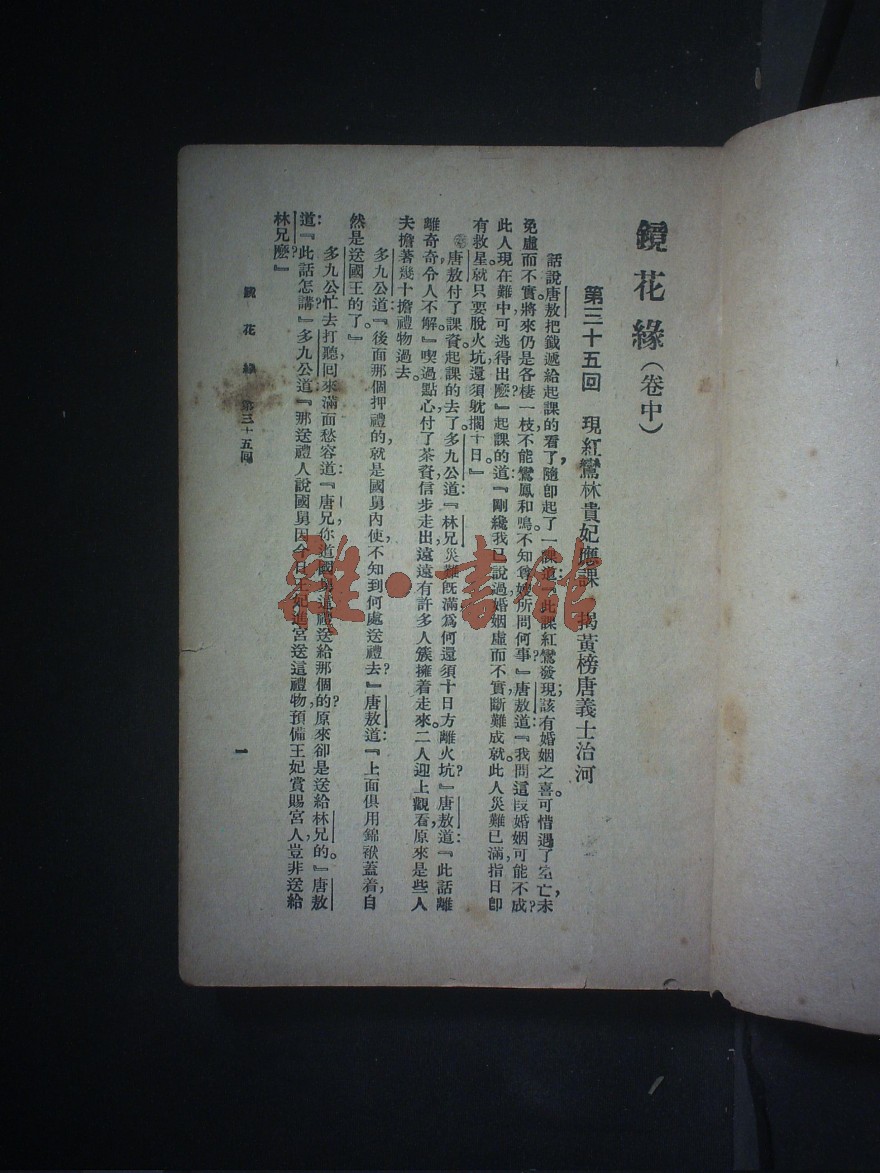 鏡花緣(卷中)
第三十五回 現紅鸞林貴妃應課 揭黃榜唐義士治河
話說唐敖把籤遞給起課的看了,隨卽起了一課道:『此課紅鸞發現;該有婚姻之喜。可惜遇了空亡,未
免虛而不實。將來仍是各棲一枝,不能鸞鳳和鳴。不知尊嫂所問何事?』唐敖道:『我問這段婚姻可能不成?
此人現在難中,可逃得出麽?』起課的道:『剛纔我已說過,婚姻虛而不實,斷難成就。此人災難已滿,指日卽
有救星。就只要脫火坑,還須躭擱十日。』
唐敖付了課資,起課的去了。多九公道:『林兄災難旣滿,爲何還須十日方離火坑?』唐敖道:『此話離
離奇奇,令人不解。』喫過點心,付了茶資,信步走出。遠遠有許多人簇擁着走來。二人迎上觀看,原來是些人
夫擔著幾十擔禮物過去。
多九公道:『後面那個押禮的,就是國舅內使,不知到何處送禮去?』唐敖道:『上面俱用錦袱蓋着,自
然是送國王的了。』
多九公忙去打聽,回來滿面愁容道:『唐兄,你道國舅這禮送給那個的?原來卻是送給林兄的。』唐敖
道:『此話怎講?』多九公道:『那送禮人說:國舅因今日王妃進宮,送這禮物預備王妃賞賜宮人,豈非送給
林兄麽?』
鏡花緣 第三十五回
一
雜·書館